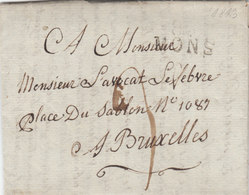 1803
A Monsieur
MONS
Monsieur L'avocat Lefebvre
Place Du Sablon N° 1087
A Bruxelles